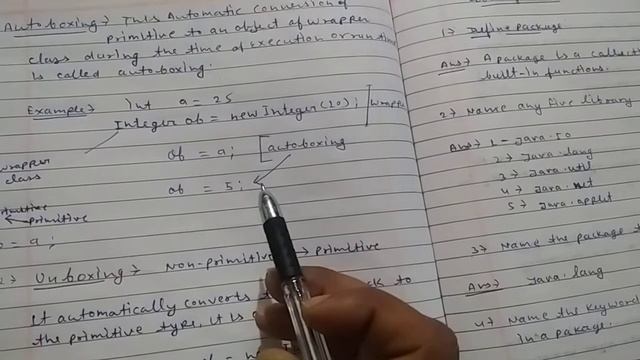 Autoboxing → This Automatic conversion of
primitive to an object of wrapper
class during the time of execution or runtime
is called autoboxing.
Example → int a = 25
Integer ob = new Integer(20); wrapper
wrapper
class
ob = a; [autoboxing
ob = 5;
primitive
primitive
= a;
Unboxing → Non-primitive → primitive
It automatically converts to
the primitive type, it is
1) Define package
Ans → A package is a
built-in functions.
2) Name any five library
Ans → 1 - Java.io
2) Java.lang
3) Java.util
4) Java.net
5) Java.applet
3) Name the package
Ans → Java.lang
4) Name the keyword
in a package.